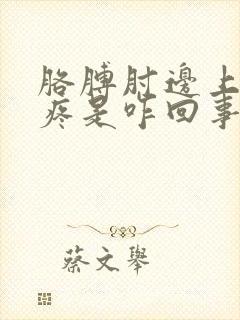 胳膊肘邊上
疼是咋回事
蔡文舉